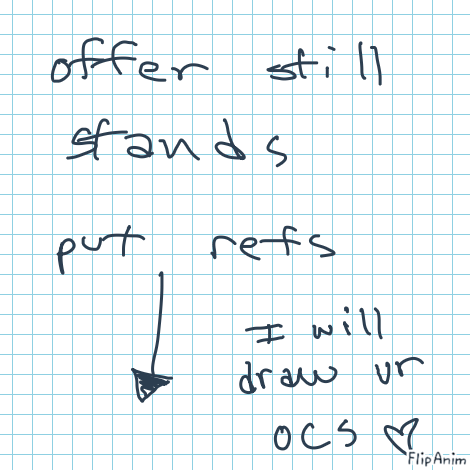 offer still
stands
put refs
I will
draw ur
OCS ♡
FlipAnim